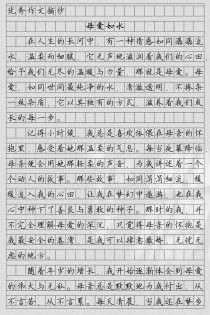 优秀作文摘抄
母爱如水
在人生的长河中，有一种情感如同潺潺流
水，温柔而细腻，它无声地滋润着我们的心田
给予我们无尽的温暖与力量，那就是母爱。母
爱，如同世间最纯净的水，清澈透明，不掺杂
一丝杂质，它以其独有的方式，滋养着我们成
长的每一步。
记得小时候，我总是喜欢依偎在母亲的怀
抱里，感受着她那温柔的气息。每当夜幕降临
母亲便会用她那轻柔的声音，为我讲述着一个
个动人的故事。那些故事，如同涓涓细流，缓
缓流入我的心田，让我在梦幻中遨游，也在我
心中种下了善良与勇敢的种子。那时的我，并
不完全理解母爱的深沉，只觉得母亲的怀抱是
我最安全的港湾，是我可以肆意撒娇、无忧无
虑的地方。
随着年岁的增长，我开始逐渐体会到母爱
的伟大与无私。母亲总是默默地为我付出，从
不言苦，从不言累。每天清晨，当我还在梦乡